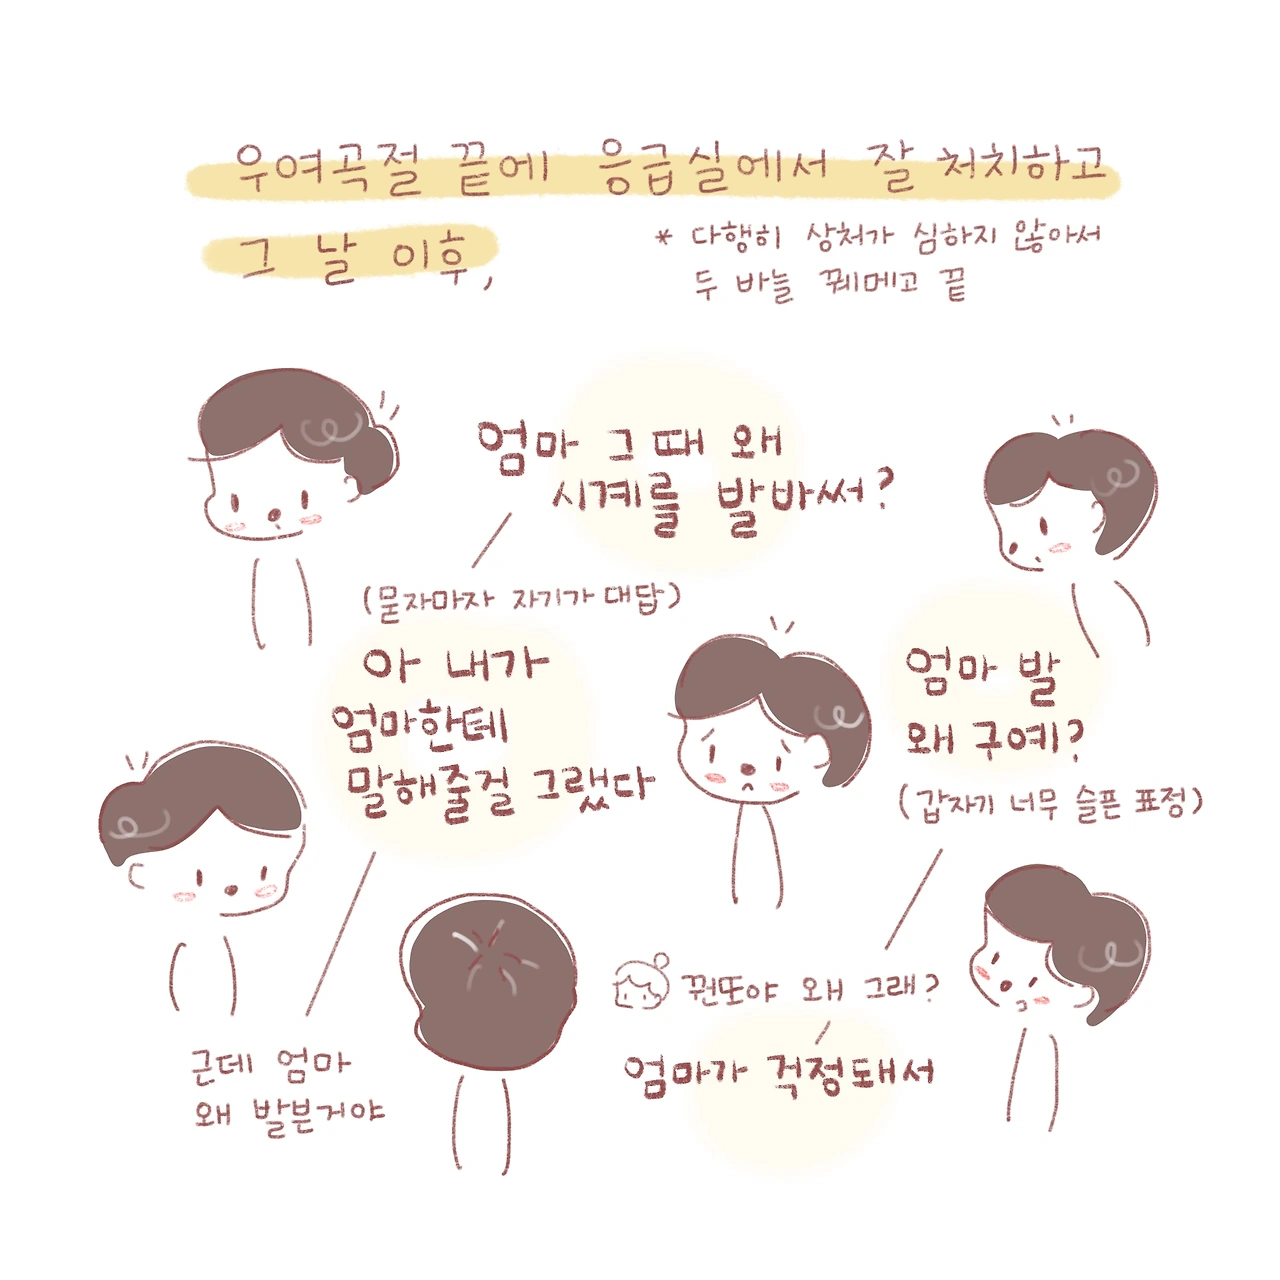 우여곡절 끝에 응급실에서 잘 처치하고
그 날 이후,
* 다행히 상처가 심하지 않아서
두 바늘 꿰메고 끝
엄마 그 때 왜
시계를 발바써?
(묻자마자 자기가 대답)
아 내가
엄마한테
말해줄걸 그랬다
근데 엄마
왜 발븐거야
엄마 발
왜 구예?
(갑자기 너무 슬픈 표정)
뀐또야 왜 그래?
엄마가 걱정돼서